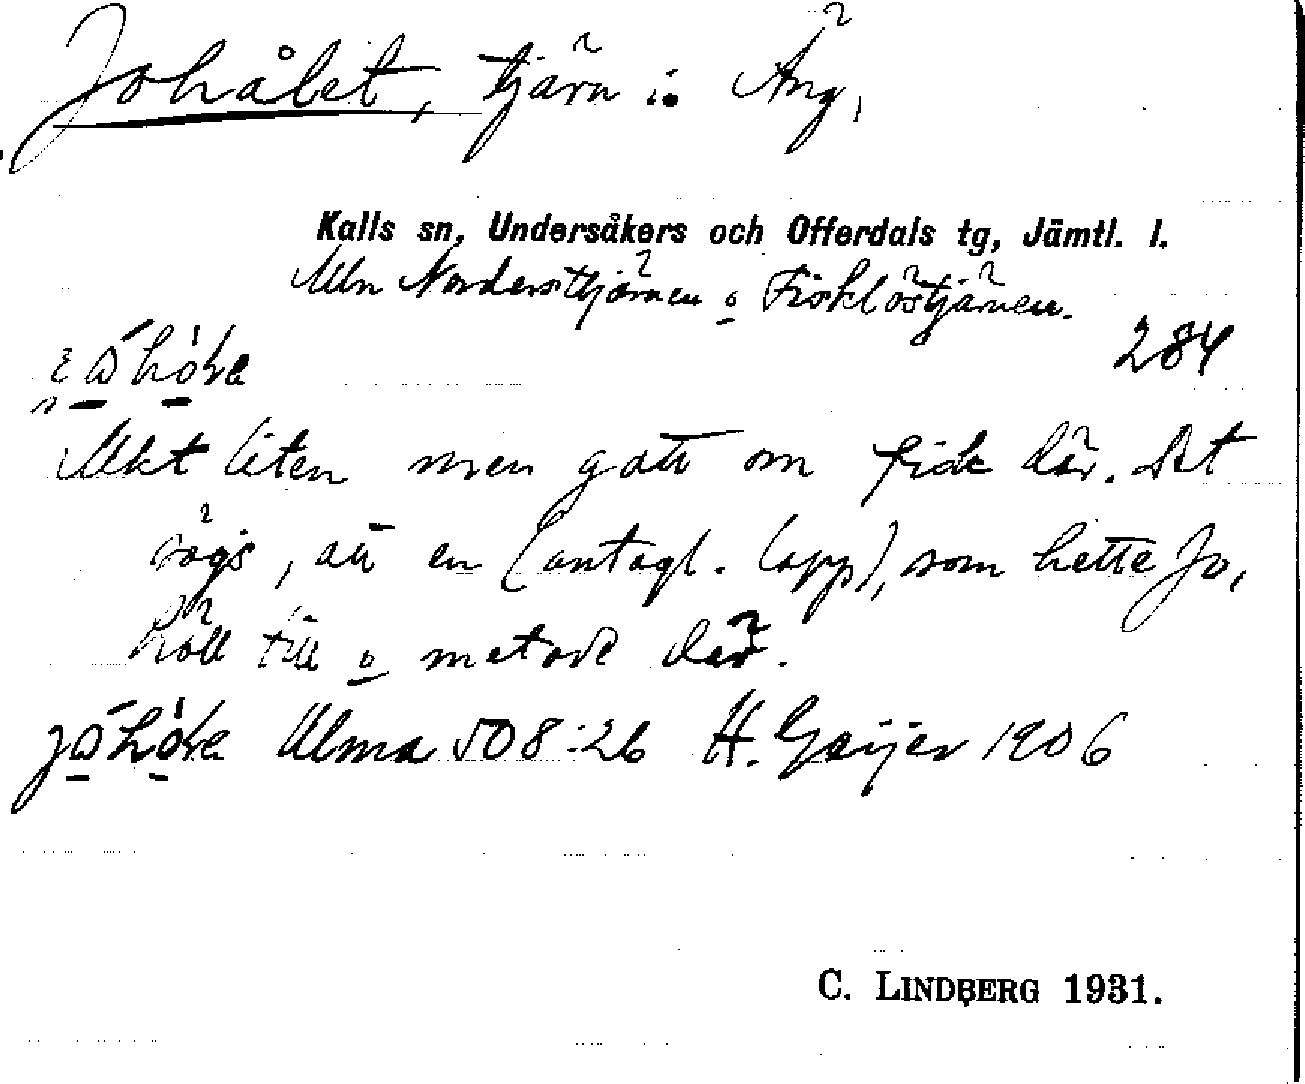 Johålet, tjärn i: Äng,
Kalls sn, Undersåkers och Offerdals tg, Jämtl. l.
Mln Nordersttjärnen o Fisklöstjärnen.
284
Mkt liten men gott om fisk där. Det
sägs, att en (antagl. lapp), som hette Jo,
höll till o metade där.
Ulma 508:26 H. Geijer 1906
C. LINDBERG 1931.